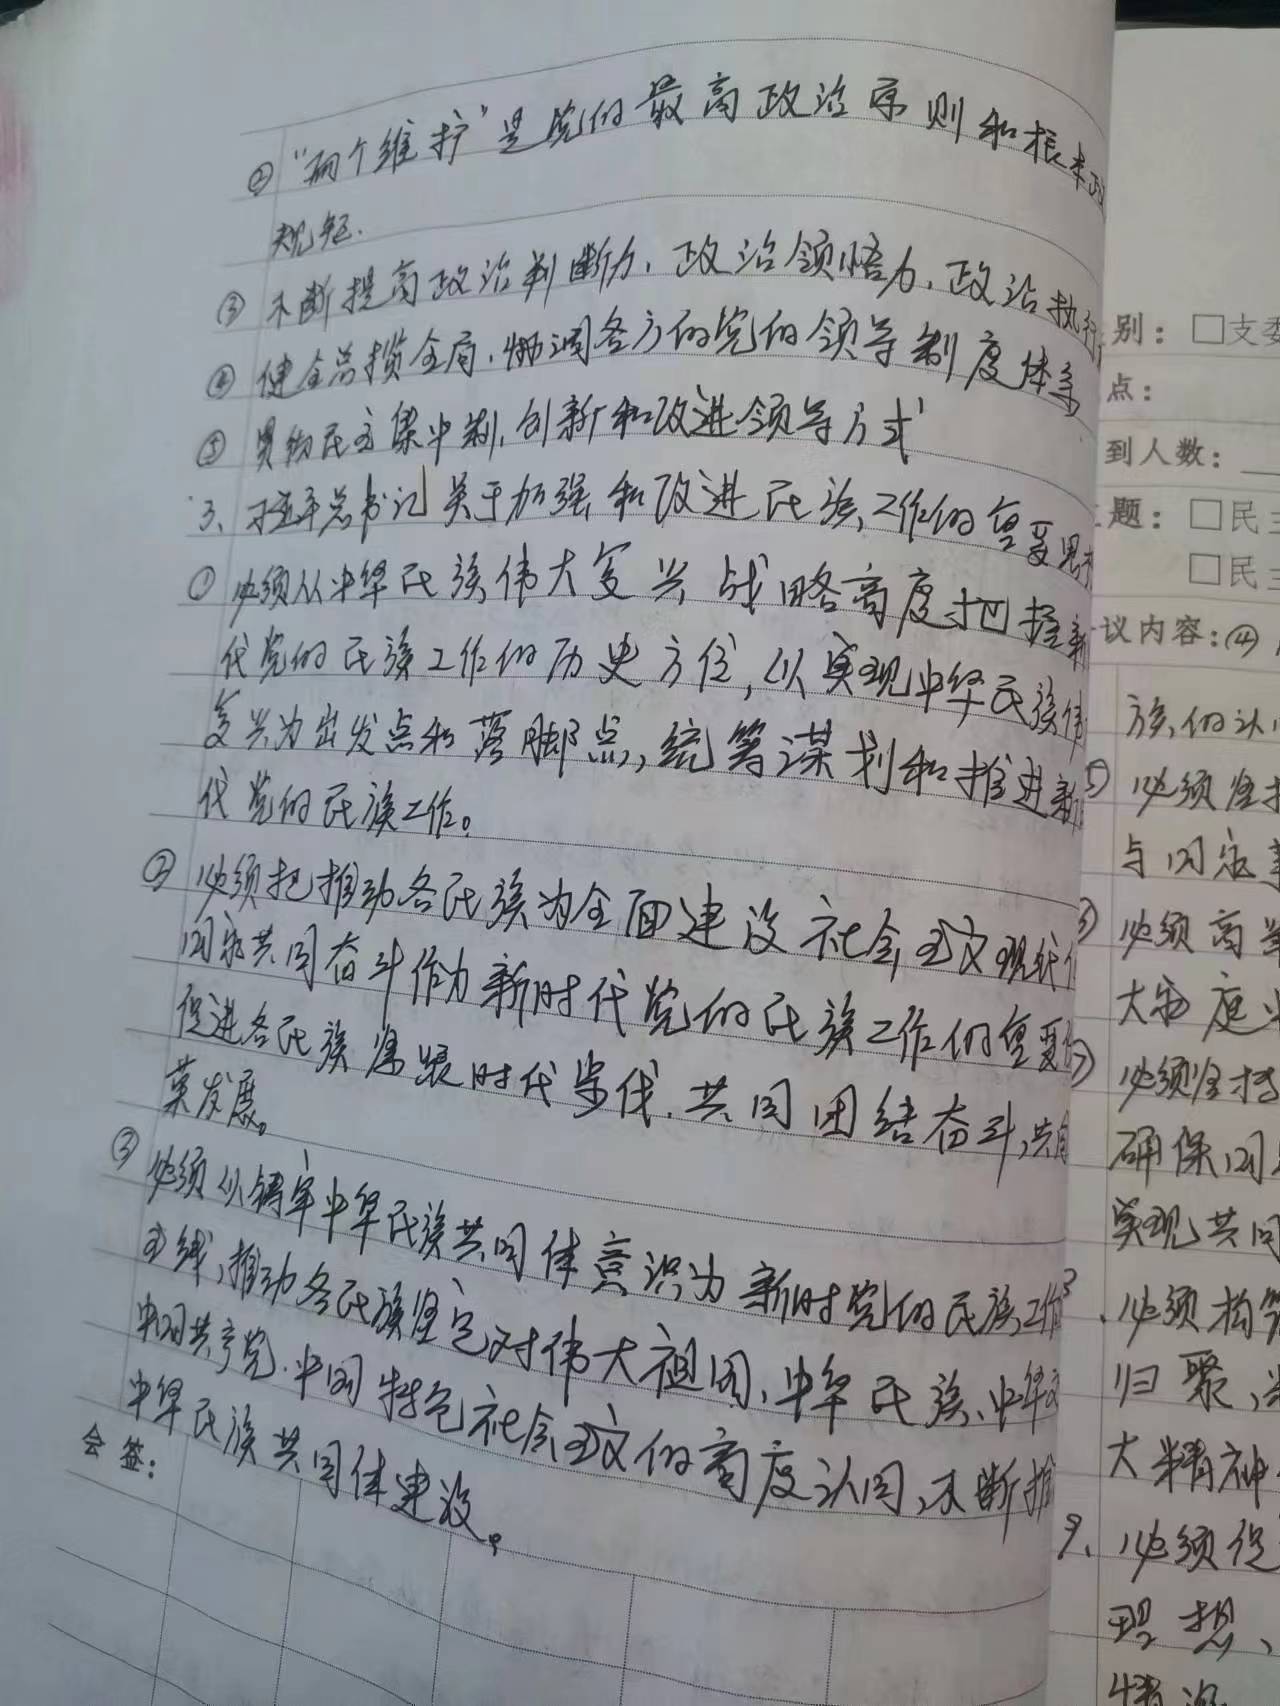 ②“两个维护”是党的最高政治原则和根本政
规矩.
③ 不断提高政治判断力、政治领悟力、政治执行
④ 健全总揽全局、协调各方的党的领导制度体系
⑤ 贯彻民主集中制,创新和改进领导方式
3、习近平总书记关于加强和改进民族工作的重要思想
① 必须从中华民族伟大复兴战略高度把握新
代党的民族工作的历史方位,以实现中华民族伟
复兴为出发点和落脚点,统筹谋划和推进新
代党的民族工作。
② 必须把推动各民族为全面建设社会主义现代
国家共同奋斗作为新时代党的民族工作的重要
促进各民族紧跟时代步伐、共同团结奋斗,共同
荣发展。
③ 必须以铸牢中华民族共同体意识为新时党的民族工作
主线,推动各民族坚定对伟大祖国、中华民族、中华文
中国共产党、中国特色社会主义的高度认同,不断推
中华民族共同体建设。
会签:
别: □支委
点:
到人数:
题: □民主
□民主
议内容:④
族的认
⑤ 必须坚持
与国家
⑥ 必须高举
大家庭
⑦ 必须坚持
确保国
实现共同
必须构筑
归聚,
大精神
9、必须促
理想、